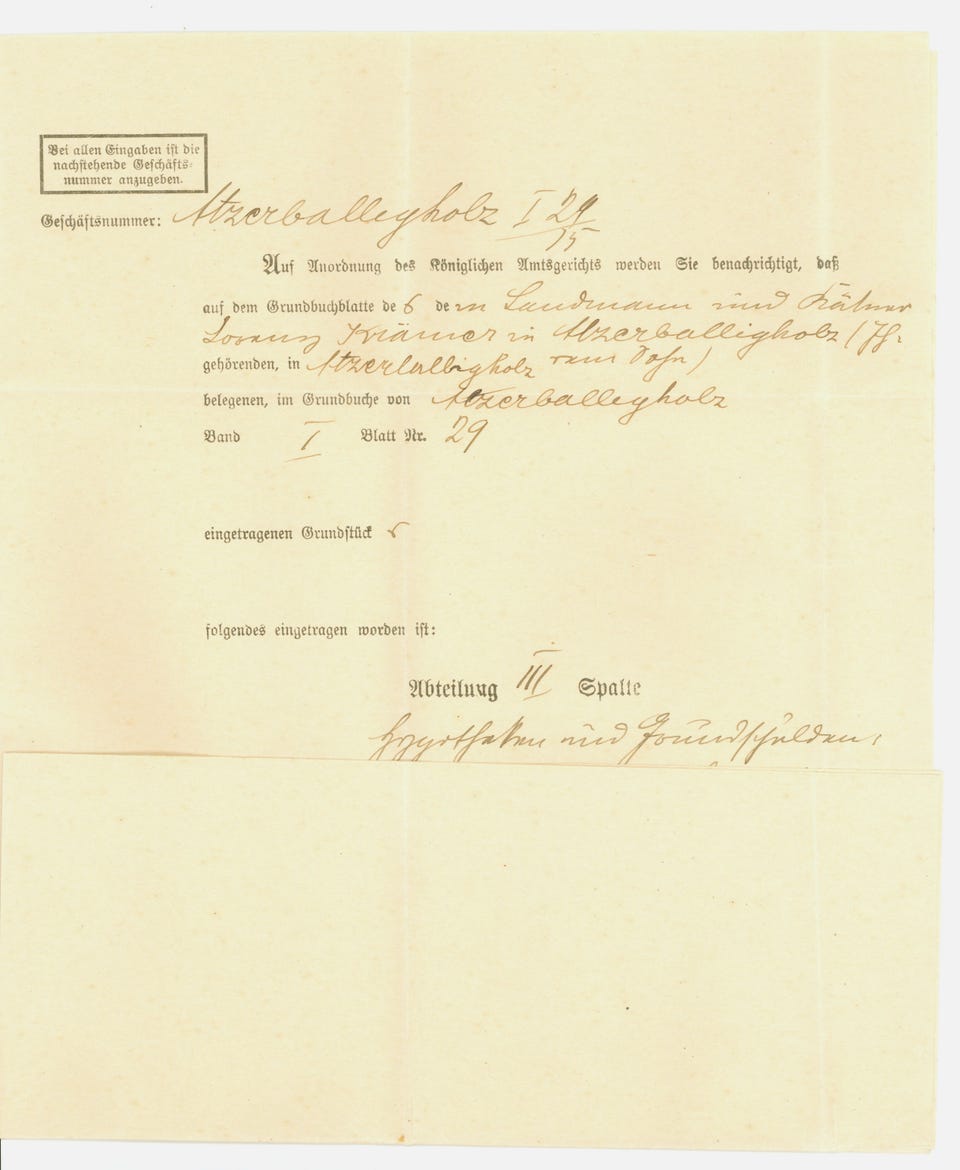 Bei allen Eingaben ist die
nachstehende Geschäfts-
nummer anzugeben.
Geschäftsnummer: Atzerballigholz I 29
15
Auf Anordnung des Königlichen Amtsgerichts werden Sie benachrichtigt, daß
auf dem Grundbuchblatte des dem Landmann und Kätner
Lorenz Krämer in Atzerballigholz (Ih-
gehörenden, in Atzerballigholz rem Sohn)
belegenen, im Grundbuche von Atzerballigholz
Band I Blatt Nr. 29
eingetragenen Grundstücks
folgendes eingetragen worden ist:
Abteilung III Spalte
Hypotheken und Grundschulden,